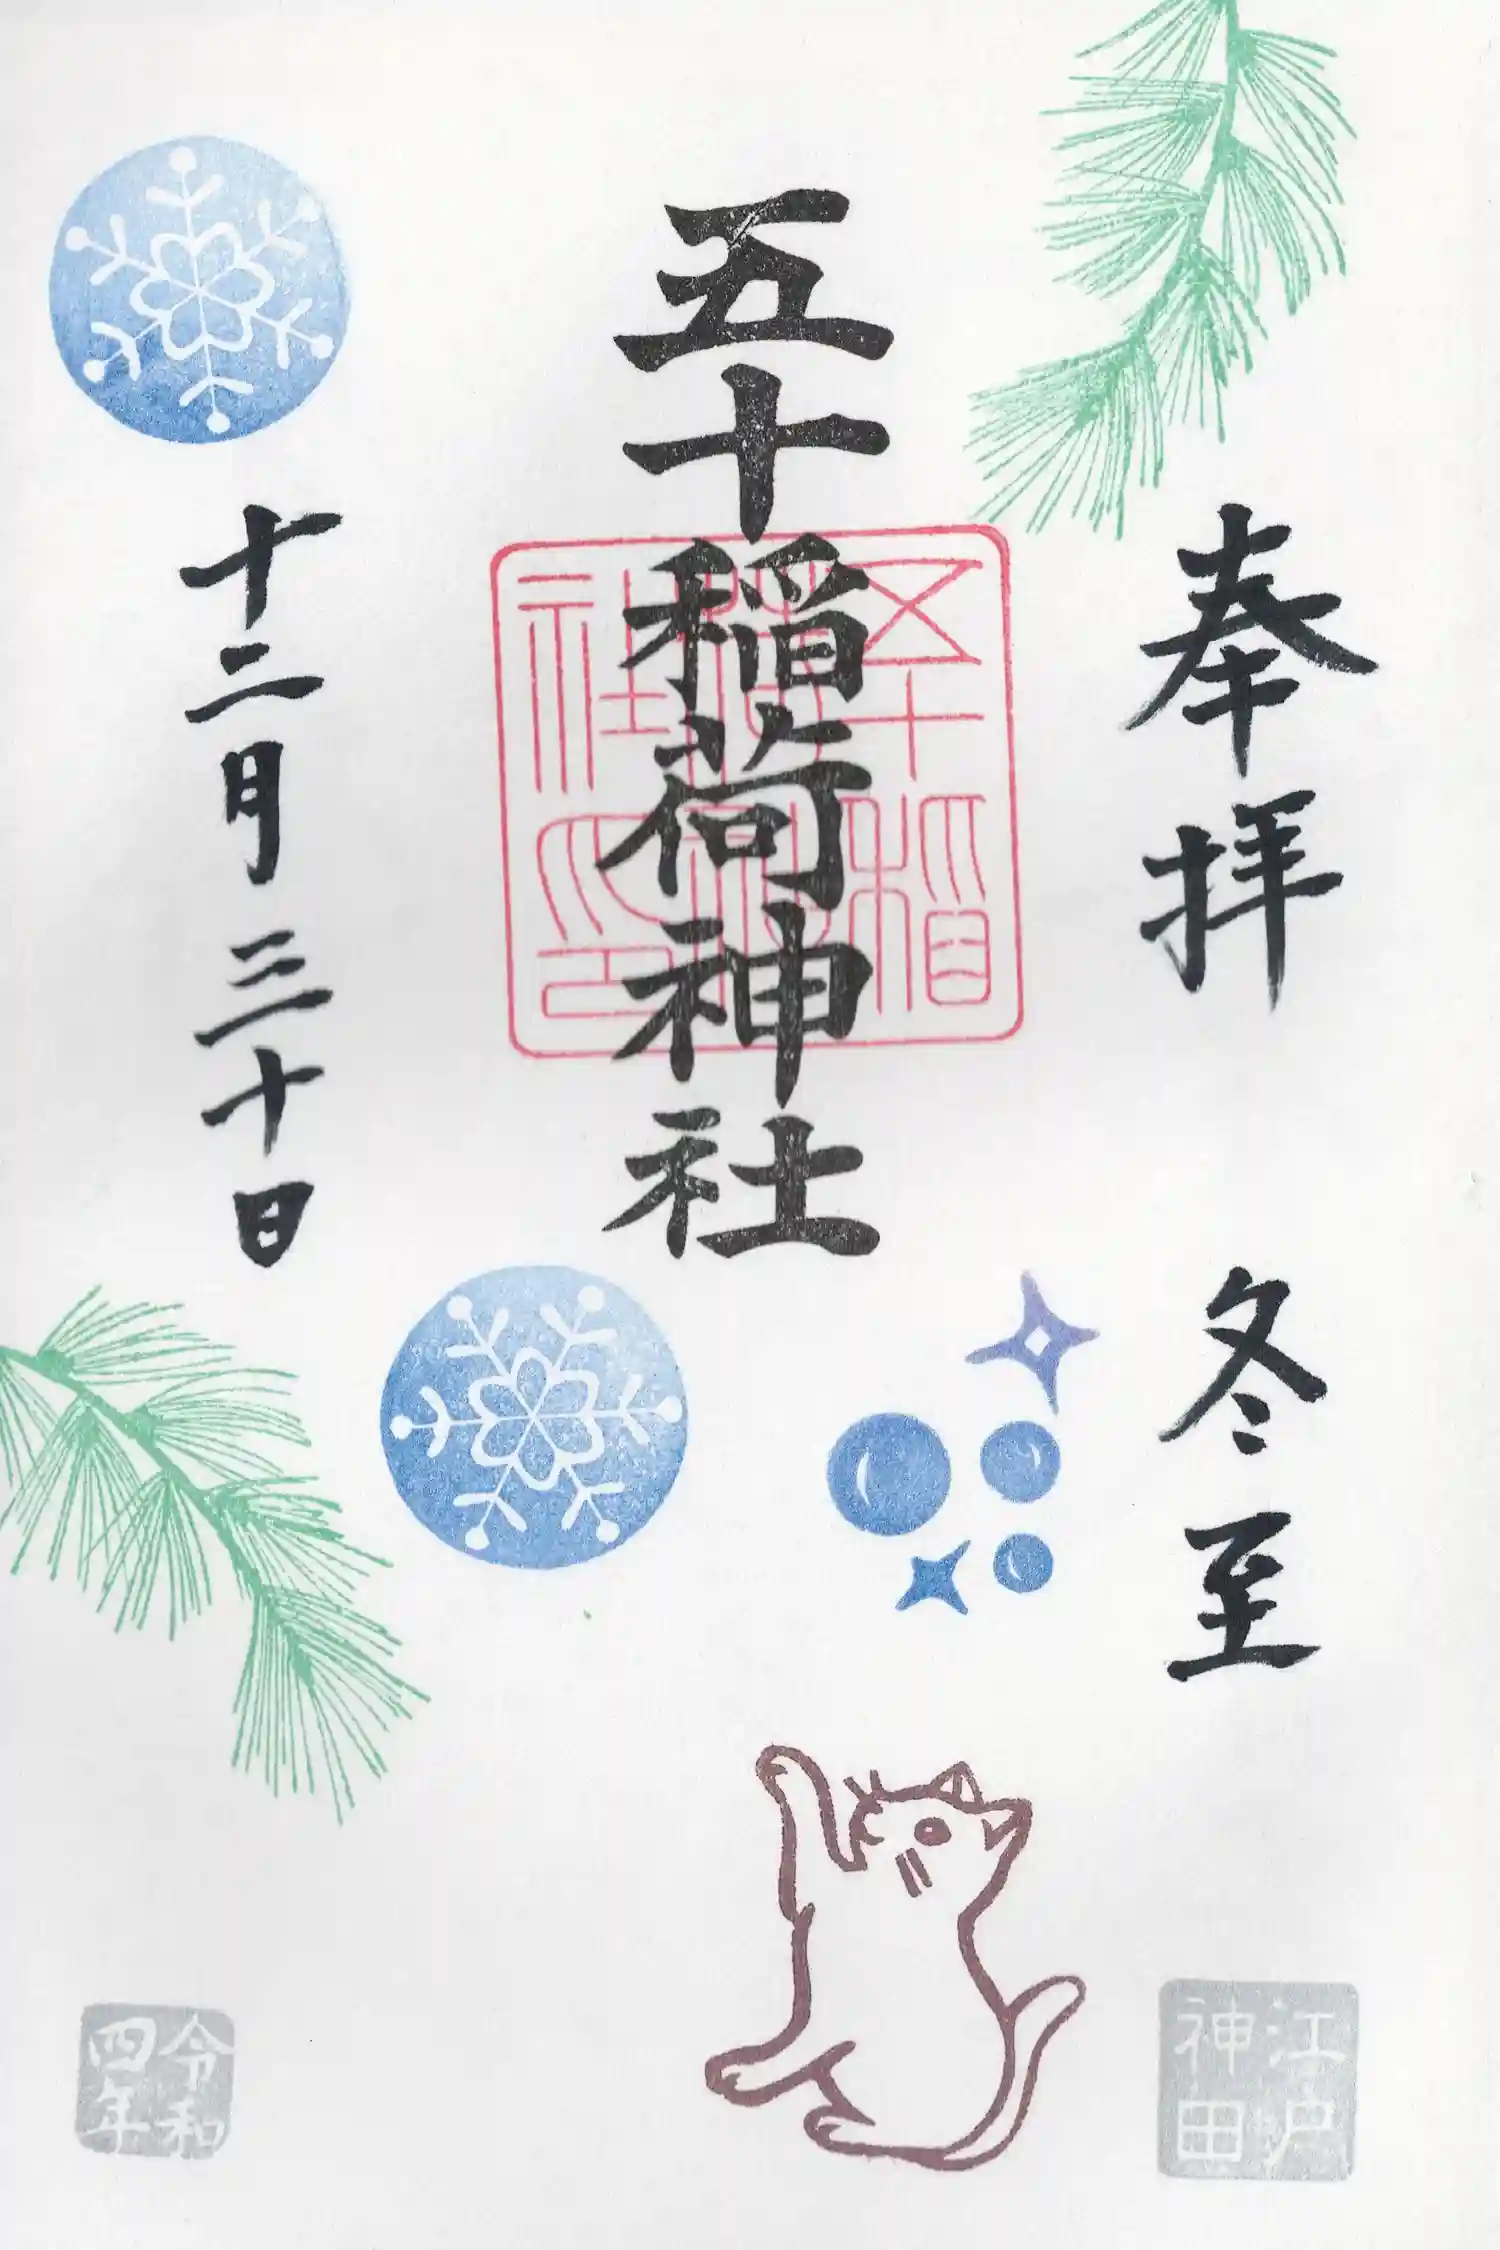 奉拝
冬至
五十稲荷神社
五十稲荷神社印
十二月三十日
江戸神田
令和四年